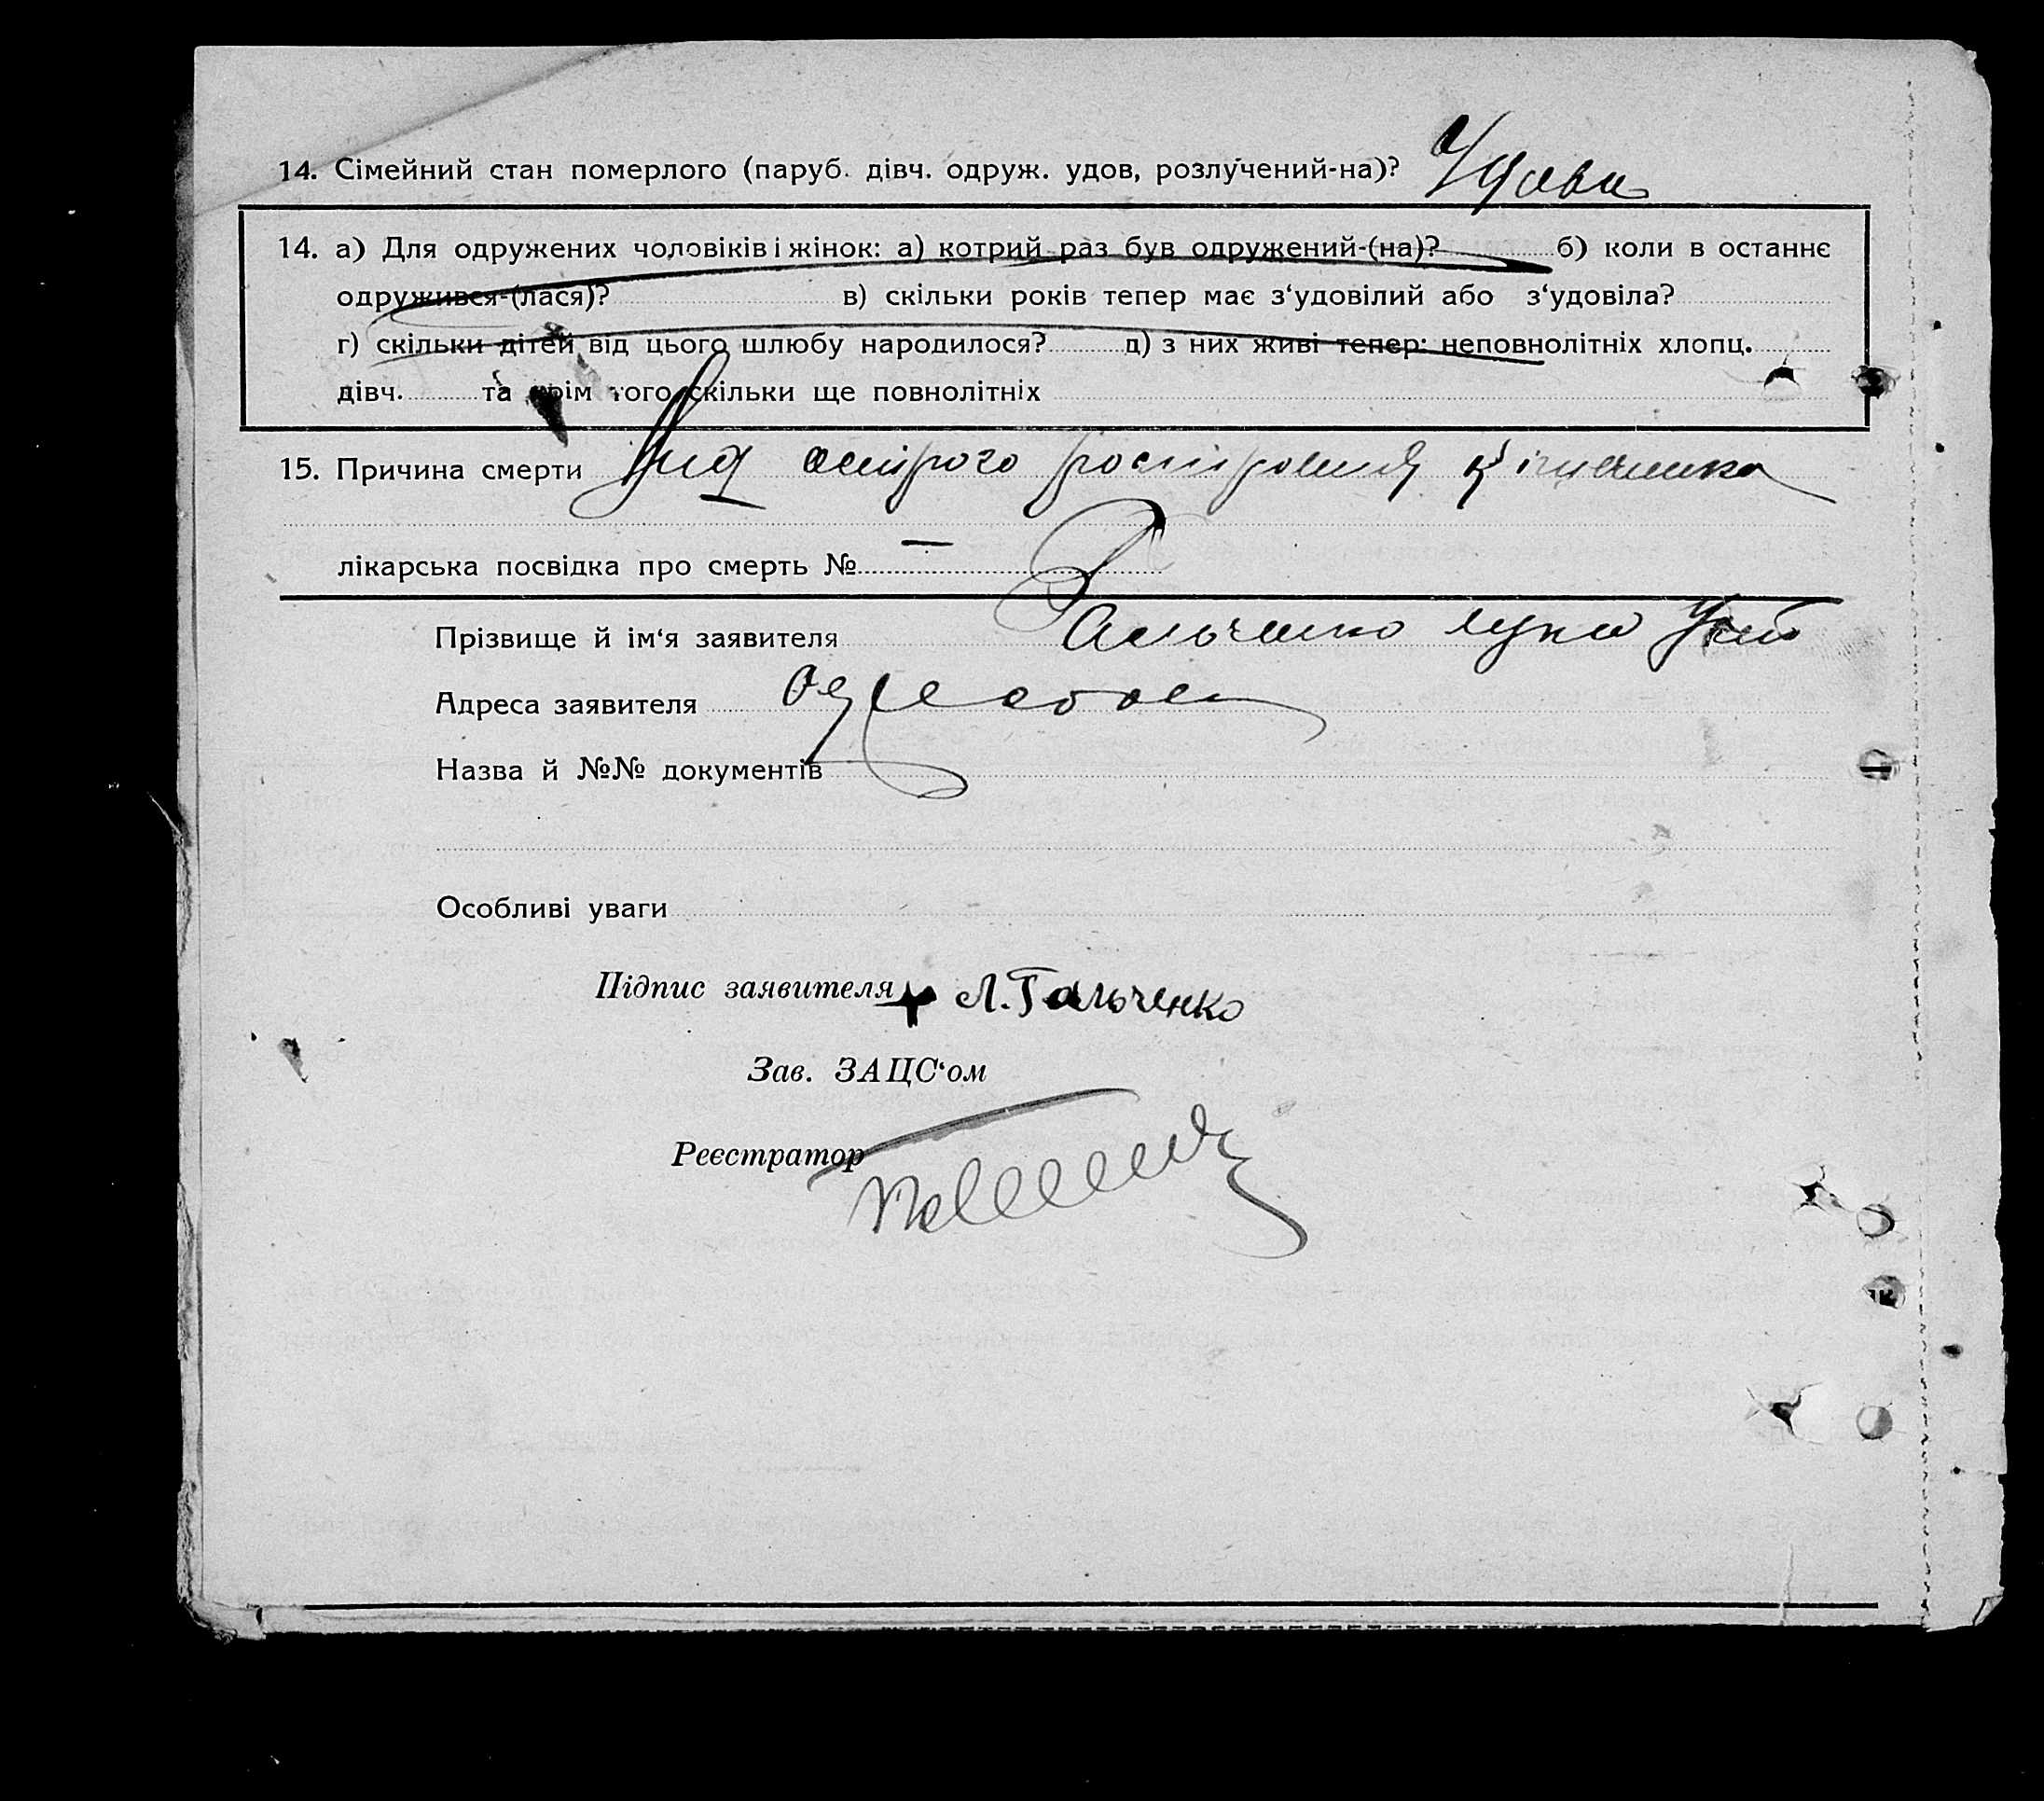 14. Сімейний стан померлого (паруб. дівч. одруж. удов, розлучений-на)? Удова
14. а) Для одружених чоловіків і жінок: а) котрий раз був одружений-(на)? б) коли в останнє
одружився-(лася)? в) скільки років тепер має з‘удовілий або з‘удовіла?
г) скільки дітей від цього шлюбу народилося? д) з них живі тепер: неповнолітніх хлопц.
дівч. та крім того скільки ще повнолітніх
15. Причина смерти Від острого
лікарська посвідка про смерть № —
Прізвище й ім‘я заявителя Гальченко Лука
Адреса заявителя
Назва й №№ документів
Особливі уваги
Підпис заявителя + Л. Гальченко
Зав. ЗАЦС‘ом
Реєстратор